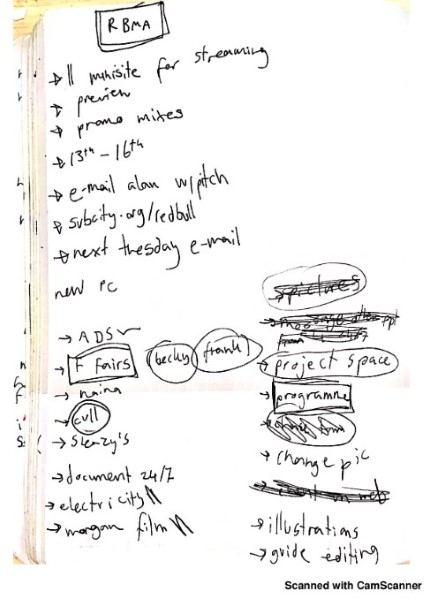 RBMA
→ || minisite for streaming
→ preview
→ promo mixes
→ 13th - 16th
→ e-mail alan w/pitch
→ subcity.org/redbull
→ next tuesday e-mail
new pc
→ ADS ✓
→ F fairs
becky
frank
→ naina
→ cull
→ sleazy's
→ document 24/7
→ electricity \\
→ morgan film \\
→ pictures
→ project space
→ programme
→ change pic
→ illustrations
→ guide editing
Scanned with CamScanner